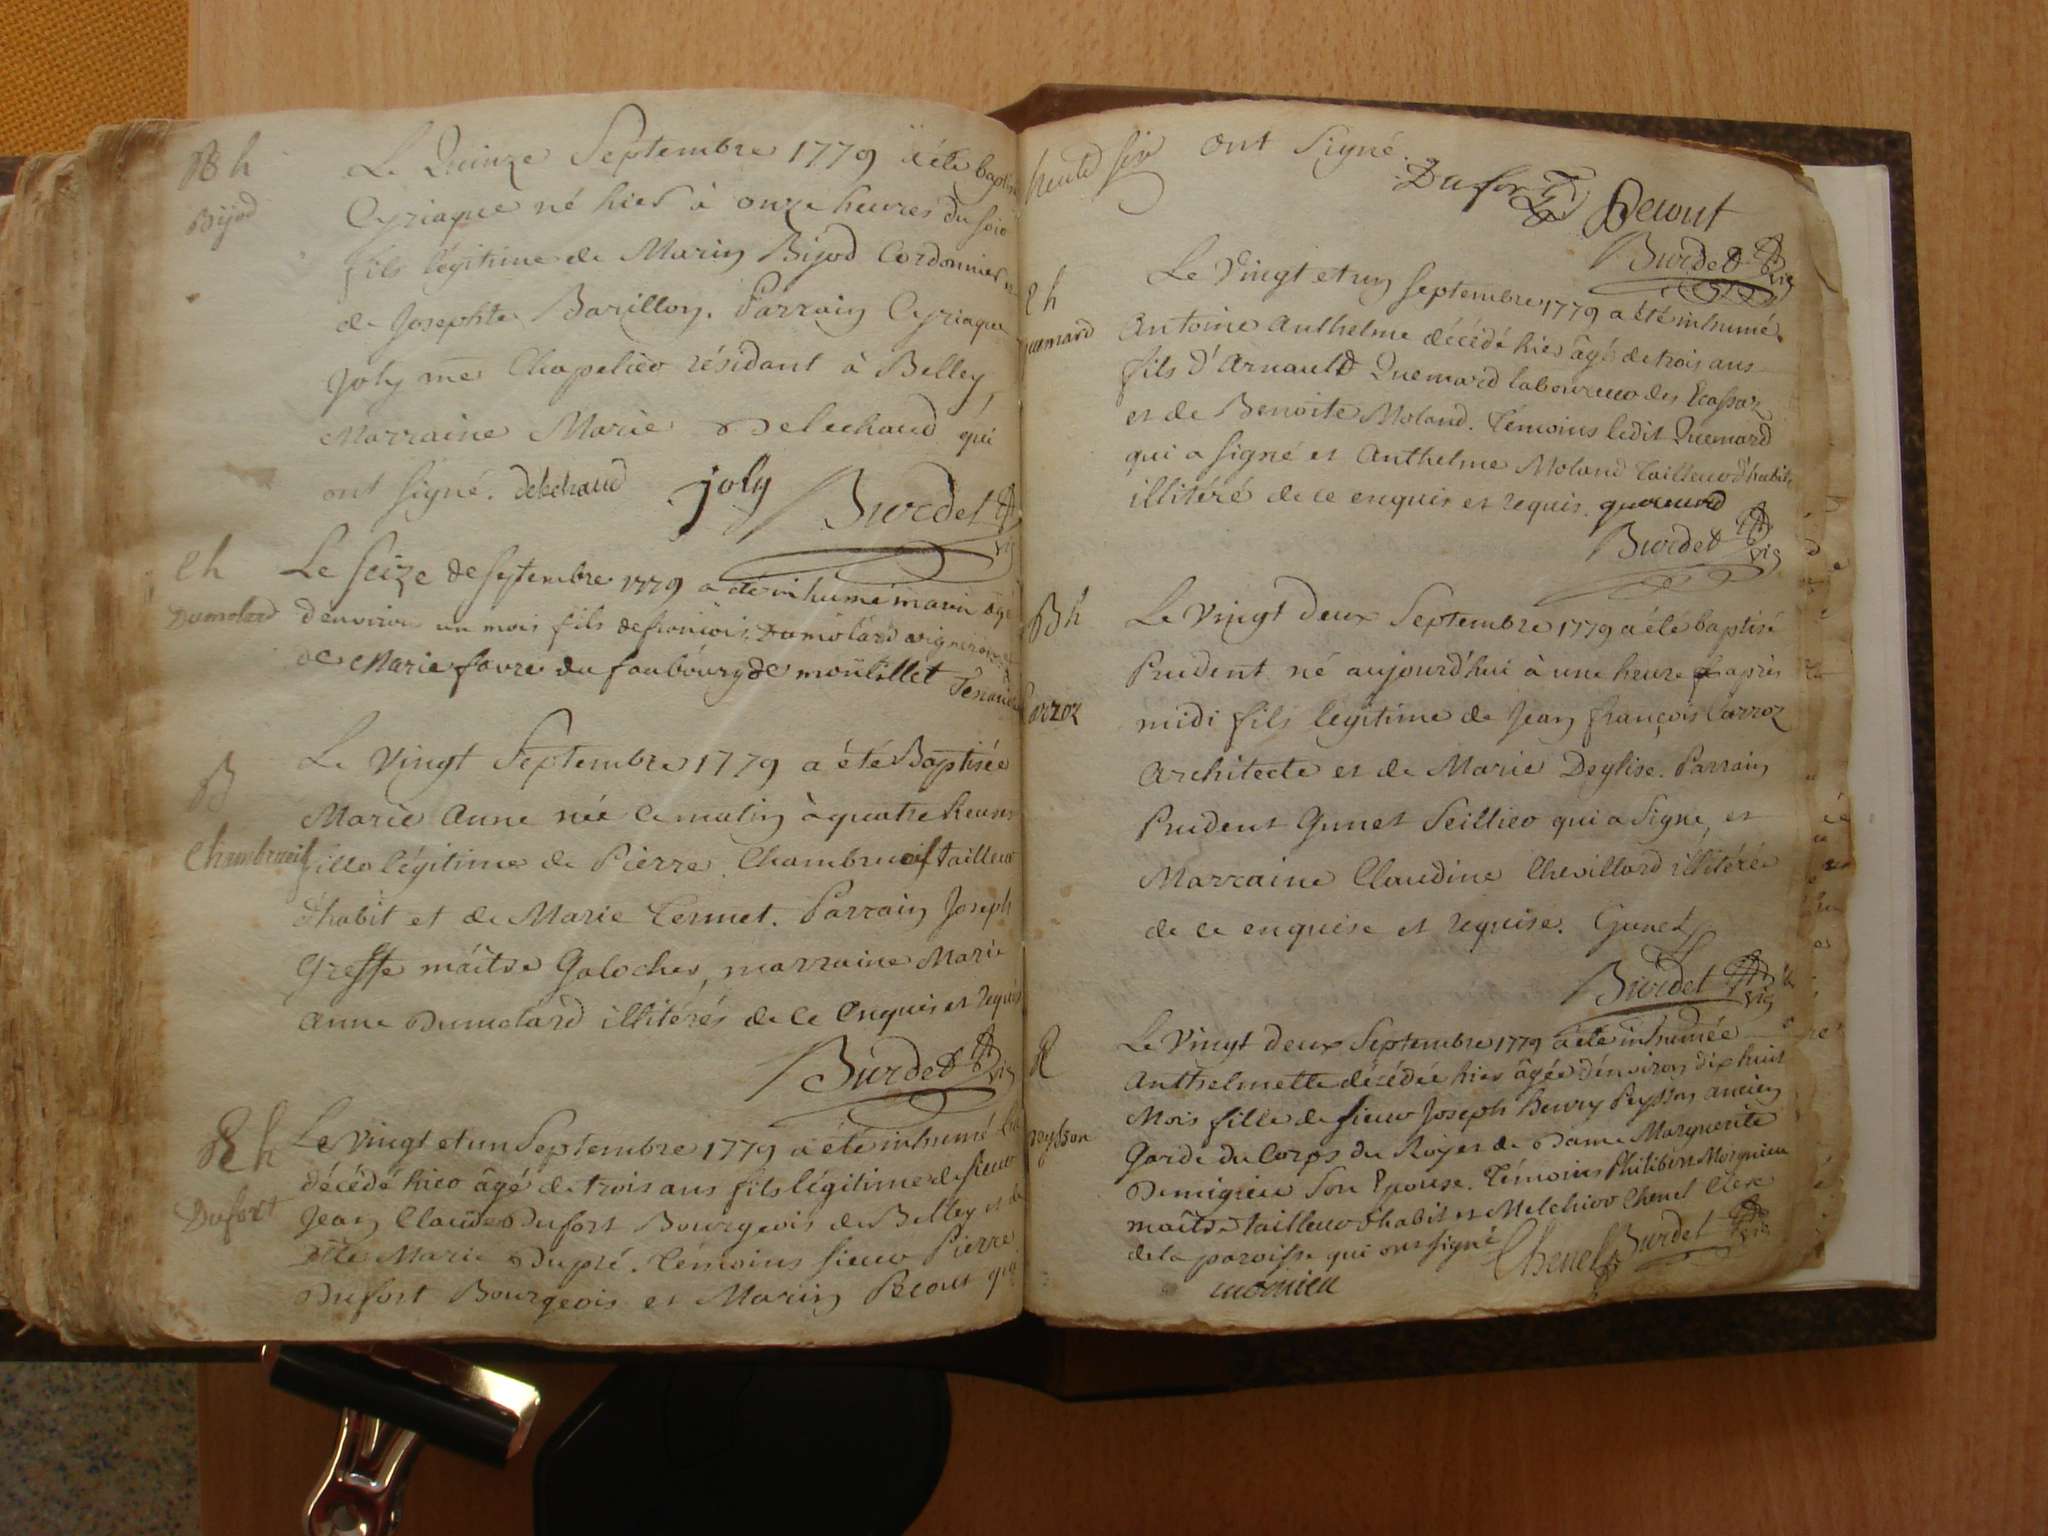 B h
Bijod
Le Quinze Septembre 1779 a été baptisé
Cyriaque né hier à onze heures du soir
fils légitime de Marin Bijod Cordonnier
de Josephte Barillon. Parrain Cyriaque
Joly me Chapelier résidant à Belley,
Marraine Marie Delechaud qui
ont signé. delechaud joly Burdet vic
e h
Dumolard
Le seize de septembre 1779 a été inhumé marin agé
d'environ un mois fils de francois Dumolard vigneron
de Marie favre du faubourg de
B
Chambruoif
Le Vingt Septembre 1779 a été Baptisée
Marie Anne née ce matin à quatre heures
fille légitime de Pierre Chambruoif tailleur
d'habit et de Marie Termet. Parrain Joseph
Greffe maître Galocher, marraine Marie
Anne Dumolard illitérés de ce enquis et requis
Burdet vic
h
Dufort
Le Vingt et un Septembre 1779 a été inhumé
décédé hier âgé de trois ans fils légitime de sieur
Jean Claude Dufort Bourgeois de Belley et de
Dlle Marie Dupré. Témoins sieur Pierre
Dufort Bourgeois et Marin Pecout qui
ont signé.
Dufort Pecout
Burdet vic
e h
uemard
Le Vingt et un septembre 1779 a été inhumé
Antoine Anthelme décédé hier âgé de trois ans
fils d'Arnauld Quemard laboureur des Ecassaz
et de Benoite Moland. Témoins ledit Quemard
qui a signé et Anthelme Moland tailleur d'habits
illitéré de ce enquis et requis. quemard
Burdet vic
B h
Carroz
Le Vingt deux Septembre 1779 a été baptisé
Prudent né aujourd'hui à une heure après
midi fils légitime de Jean françois Carroz
Architecte et de Marie Deglise. Parrain
Prudent Gunet Seillier qui a signé, et
Marraine Claudine Chevillard illitérée
de ce enquise et requise. Gunet
Burdet vic
peysson
Le Vingt deux Septembre 1779 a été inhumée
Anthelmette décédée hier âgée d'environ dix huit
Mois fille de sieur Joseph Henry Peysson ancien
Garde du Corps du Roy et de Dame Marguerite
Demigieu son Epouse. Témoins Philibert Moignieu
maître tailleur d'habit et Melchior Chenel Clerc
de la paroisse qui ont signé Chenel Burdet vic